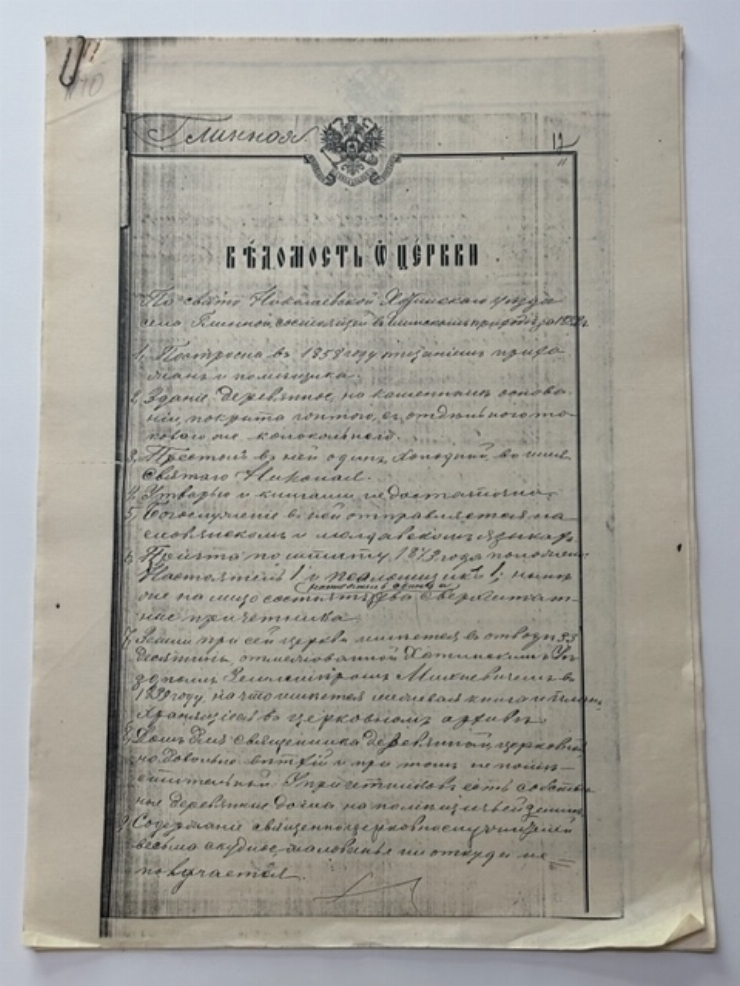 Глинноя
ВѢДОМОСТЬ Ѿ ЦЕРКВИ
По свято Николаевской Хотинскаго уѣзда
села Глинной, состоящей въ за
1, Построена въ 1858 году тщаніемъ прихо
жанъ и помѣщика.
2, Зданіе деревянное, на каменномъ основа
ніи, покрыта гонтою, съ отдѣльного та
коваго же колокольнею.
3, Престолъ въ ней одинъ, холодный, во имя
Святаго Николая.
4, Утварью и книгами недостаточна
5, Богослуженіе въ ней отправляется на
словянскомъ и молдавскомъ языкахъ
6, Причта по штату 1873 года положено
Настоятель 1 и псаломщикъ 1; нынѣ
же на лицо состоятъ два сверхштат
ные причетника.
7, Земли при сей церкви имѣется въ отводѣ 33
десятины, отмежованной Хотинскимъ Уѣ
зднымъ Землемѣромъ въ
году, на что имѣется межевая книга и планъ
хранящіеся въ церковномъ архивѣ.
8, Домъ для священника деревянный, церковный
но довольно ветхій и при томъ не помѣ
стительный. У причетниковъ есть собствен
ные деревянные дома на помѣщичьей землѣ
9, Содержаніе священноцерковнослужителей
весьма скудное, жалованья ни откуда не
получается.